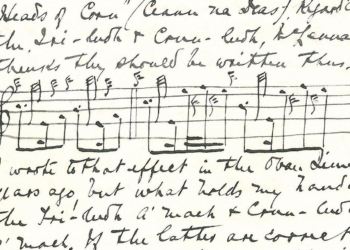 Heads of Corn" (Ceann na Deas) Regard
the Tri-ludh & Crun-ludh, McLennan
thinks they should be written thus.
I wrote to that effect in the Oban Times
years ago, but what holds my hand
the Tri-ludh A' mach & Crun-ludh
A' mach. If the latter are correct